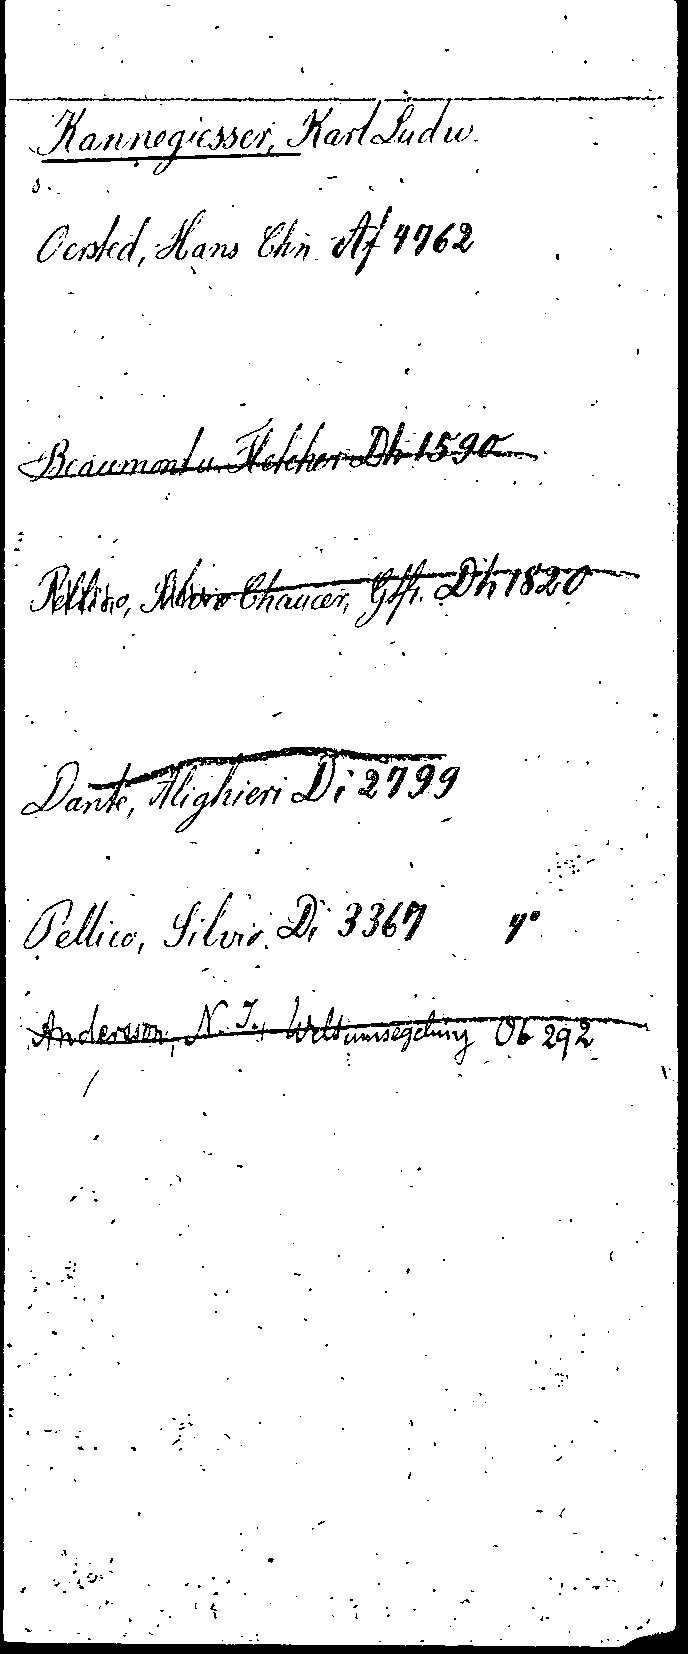 Kannegiesser, Karl Ludw.
s.
Oersted, Hans Chn. Af 4762
Beaumont u. Fletcher Dh 1590
Pellico, Silvio Chaucer, Gffr. Dh 1820
Dante, Alighieri Di 2799
Pellico, Silvio. Di 3367 4°
Andersson, N. J., Weltumsegelung Ob 292